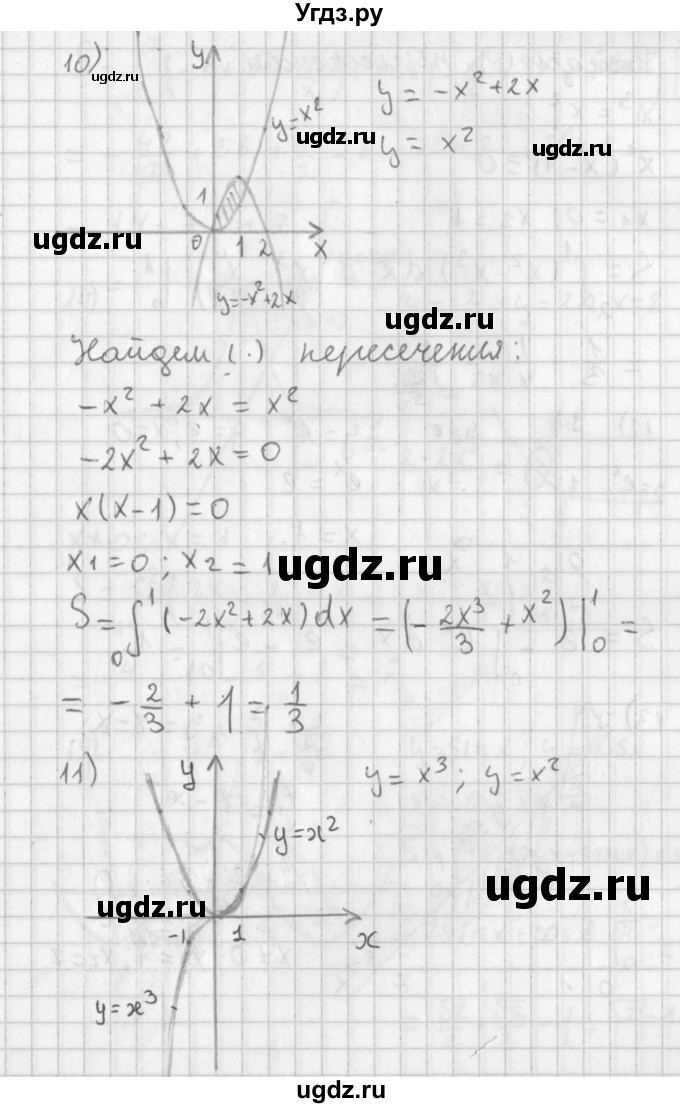 Угдз.ру
10) y y = -x² + 2x
ugdz.ru
y=x²
ugdz.ru
y = x² ugdz.ru
1
ugdz.ru 0 1 2 x
y=-x²+2x
ugdz.ru
Найдем (·) пересечения:
-x² + 2x = x²
-2x² + 2x = 0
x(x-1) = 0
x1 = 0 ; x2 = 1
ugdz.ru
S = ₀∫¹ (-2x² + 2x) dx = (-2x³/3 + x²) |₀¹ =
= -2/3 + 1 = 1/3
11) y y = x³ ; y = x²
y = x²
ugdz.ru
ugdz.ru
-1 1 x
y = x³
ugdz.ru